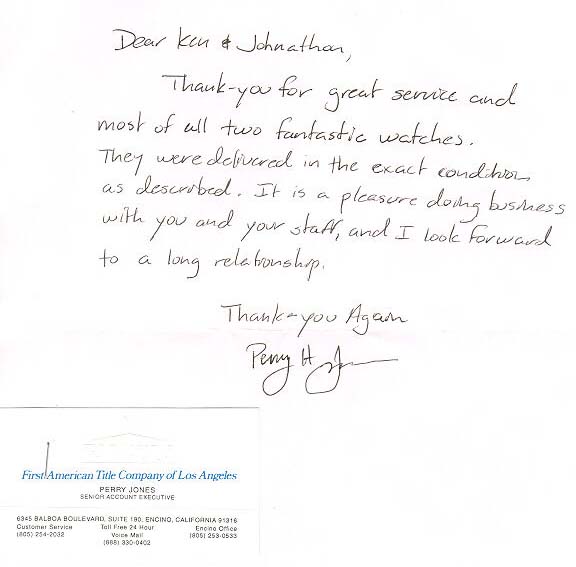 Dear Ken & Johnathon,
Thank-you for great service and
most of all two fantastic watches.
They were delivered in the exact condition
as described. It is a pleasure doing business
with you and your staff, and I look forward
to a long relationship.
Thank-you Again
Perry H
First American Title Company of Los Angeles
PERRY JONES
SENIOR ACCOUNT EXECUTIVE
6345 BALBOA BOULEVARD, SUITE 190, ENCINO, CALIFORNIA 91316
Customer Service Toll Free 24 Hour Encino Office
(805) 254-2032 Voice Mail (805) 253-0533
(888) 330-0402